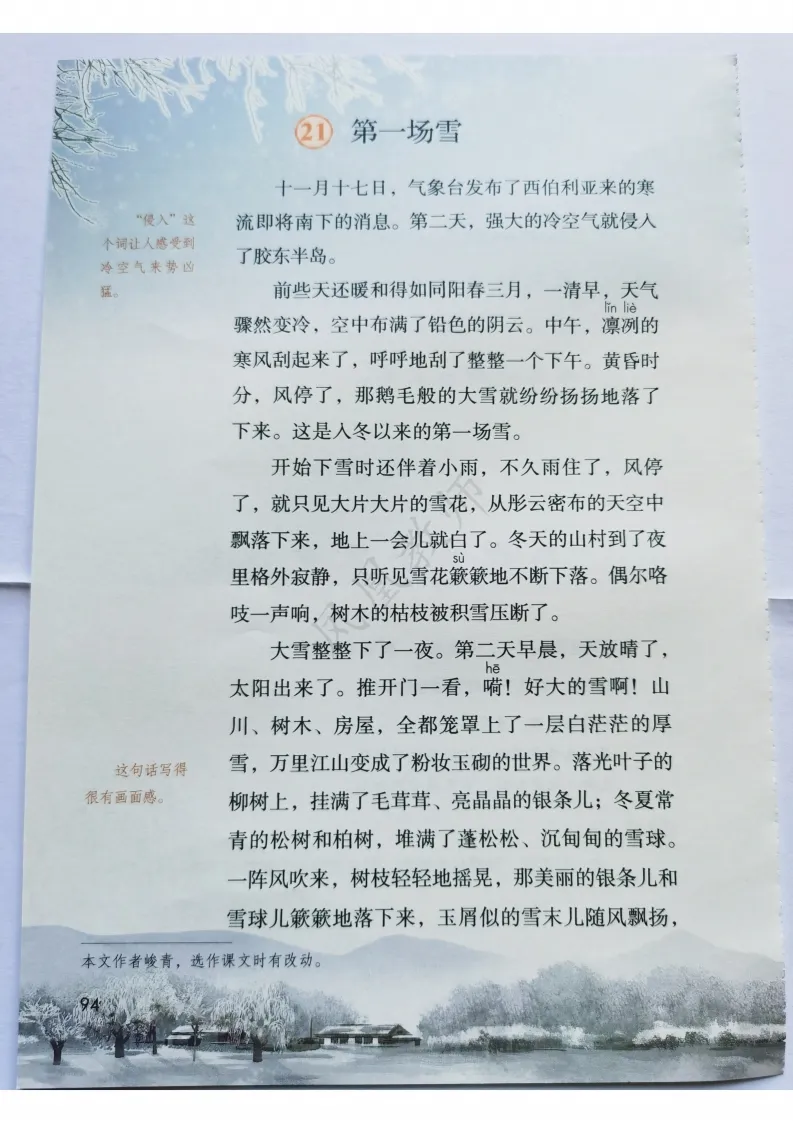 21 第一场雪
十一月十七日，气象台发布了西伯利亚来的寒
流即将南下的消息。第二天，强大的冷空气就侵入
了胶东半岛。
“侵入”这
个词让人感受到
冷空气来势凶
猛。
前些天还暖和得如同阳春三月，一清早，天气
lǐn liè
骤然变冷，空中布满了铅色的阴云。中午，凛冽的
寒风刮起来了，呼呼地刮了整整一个下午。黄昏时
分，风停了，那鹅毛般的大雪就纷纷扬扬地落了
下来。这是入冬以来的第一场雪。
开始下雪时还伴着小雨，不久雨住了，风停
了，就只见大片大片的雪花，从彤云密布的天空中
飘落下来，地上一会儿就白了。冬天的山村到了夜
sù
里格外寂静，只听见雪花簌簌地不断下落。偶尔咯
吱一声响，树木的枯枝被积雪压断了。
大雪整整下了一夜。第二天早晨，天放晴了，
hē
太阳出来了。推开门一看，嗬！好大的雪啊！山
川、树木、房屋，全都笼罩上了一层白茫茫的厚
雪，万里江山变成了粉妆玉砌的世界。落光叶子的
柳树上，挂满了毛茸茸、亮晶晶的银条儿；冬夏常
青的松树和柏树，堆满了蓬松松、沉甸甸的雪球。
一阵风吹来，树枝轻轻地摇晃，那美丽的银条儿和
雪球儿簌簌地落下来，玉屑似的雪末儿随风飘扬，
这句话写得
很有画面感。
本文作者峻青，选作课文时有改动。
94
凤凰教师